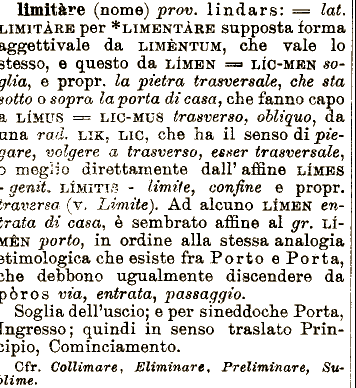 limitàre (nome) prov. lindars: = lat.
LIMITÀRE per *LIMENTÀRE supposta forma
aggettivale da LIMÈNTUM, che vale lo
stesso, e questo da LÍMEN = LÍC-MEN so-
glia, e propr. la pietra trasversale, che sta
sotto o sopra la porta di casa, che fanno capo
a LÍMUS = LIC-MUS trasverso, obliquo, da
una rad. LIK, LIC, che ha il senso di pie-
gare, volgere a trasverso, esser trasversale,
o meglio direttamente dall' affine LÍMES
- genit. LÍMITIS - limite, confine e propr.
traversa (v. Limite). Ad alcuno LÍMEN en-
trata di casa, è sembrato affine al gr. LI-
MÊN porto, in ordine alla stessa analogia
etimologica che esiste fra Porto e Porta,
che debbono ugualmente discendere da
pòros via, entrata, passaggio.
Soglia dell'uscio; e per sineddoche Porta,
Ingresso; quindi in senso traslato Prin-
cipio, Cominciamento.
Cfr. Collimare, Eliminare, Preliminare, Su-
blime.